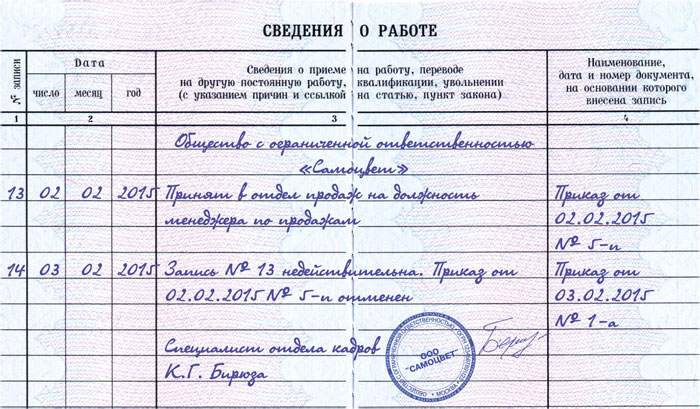 СВЕДЕНИЯ О РАБОТЕ
№ записи
Дата
число месяц год
Сведения о приеме на работу, переводе
на другую постоянную работу, квалификации, увольнении
(с указанием причин и ссылкой на статью, пункт закона)
Наименование,
дата и номер документа,
на основании которого
внесена запись
1 2 3 4
Общество с ограниченной ответственностью
«Самоцвет»
13 02 02 2015 Принят в отдел продаж на должность Приказ от
менеджера по продажам 02.02.2015
№ 5-п
14 03 02 2015 Запись № 13 недействительна. Приказ от Приказ от
02.02.2015 № 5-п отменен 03.02.2015
№ 1-а
Специалист отдела кадров
К.Г. Бирюза
ООО
"САМОЦВЕТ"
ОБЩЕСТВО С ОГРАНИЧЕННОЙ ОТВЕТСТВЕННОСТЬЮ
МОСКВА